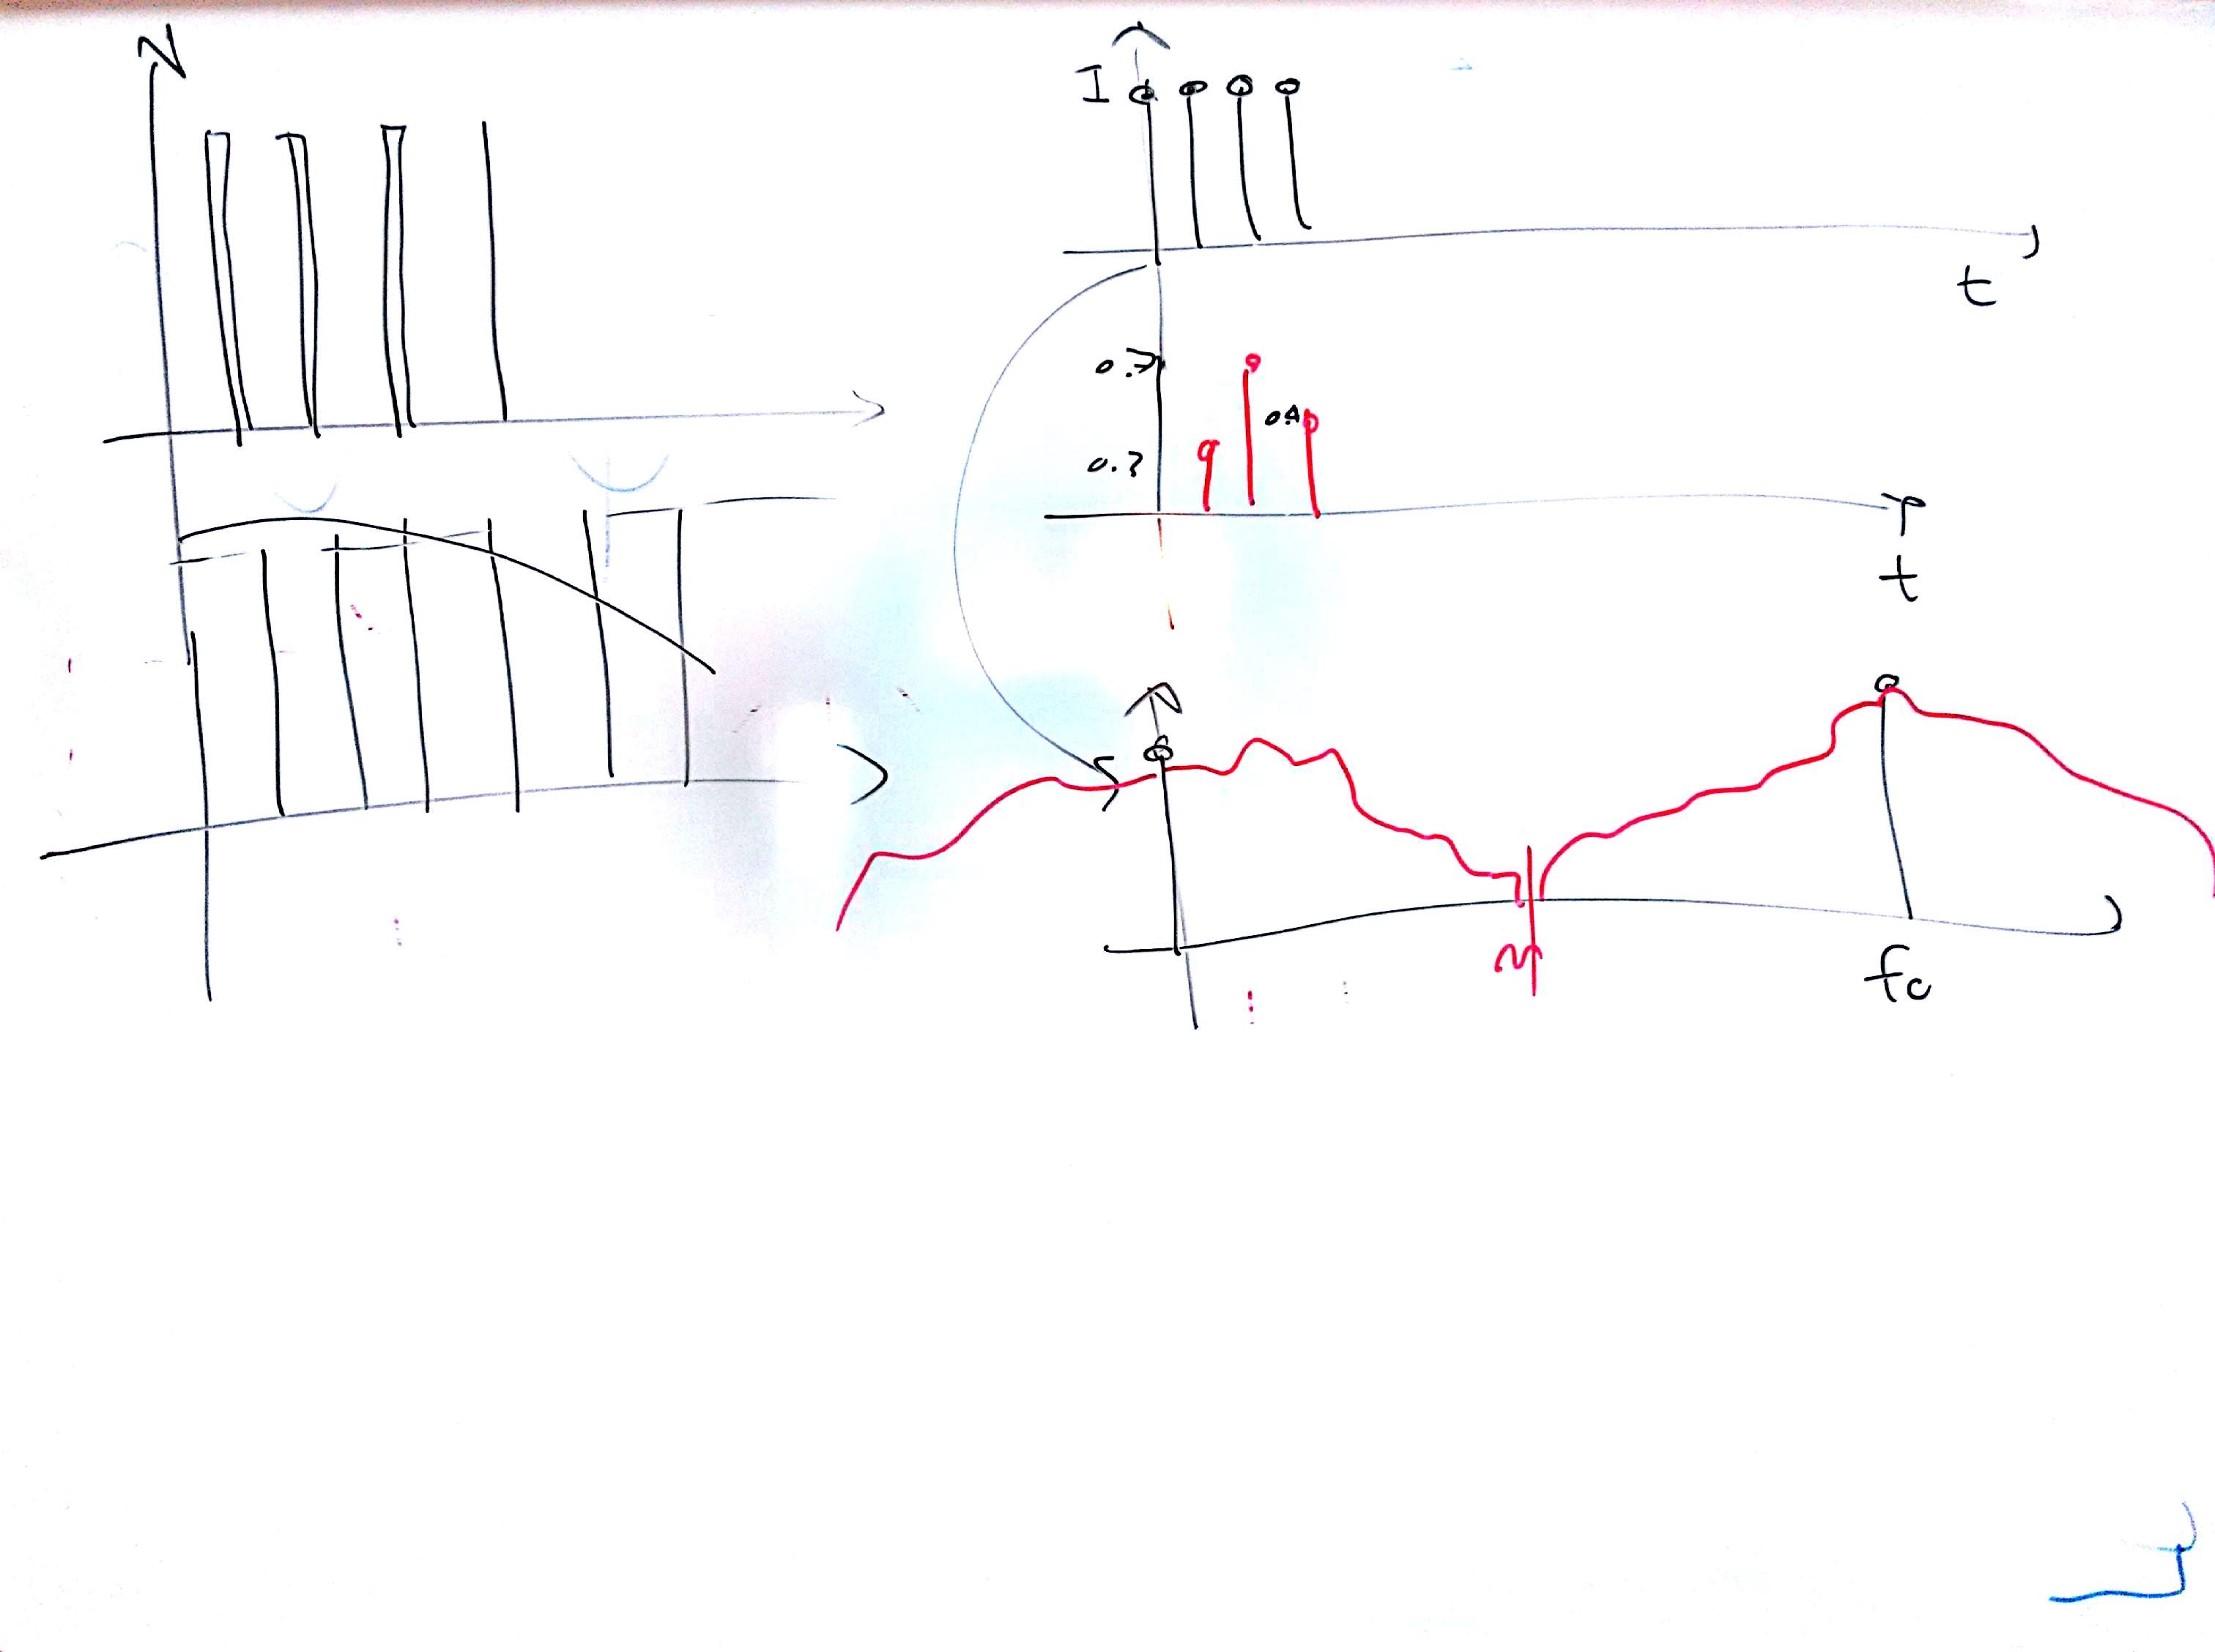 I
t
0.7
0.4
0.3
t
fc